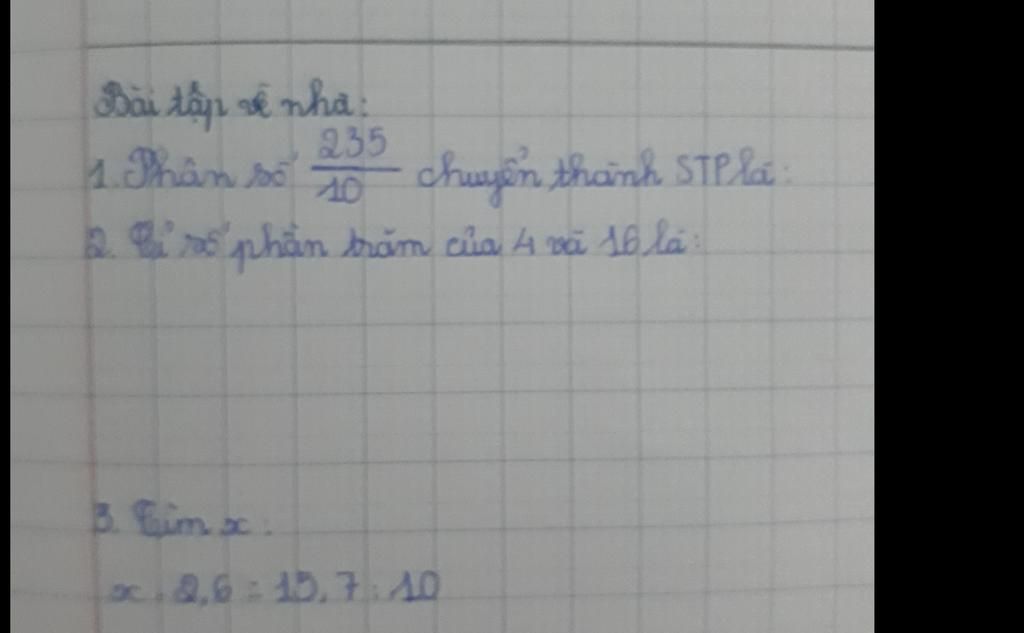 Bài tập về nhà:
1. Phân số 235/10 chuyển thành STP là:
2. Tỉ số phần trăm của 4 và 16 là:
3. Tìm x:
x . 2,6 = 15,7 : 10